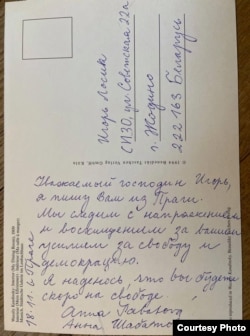 Игорь Лосик
СИЗО, ул Советская 22а
г. Жодино
222 163 Беларусь
© 1994 Benedikt Taschen Verlag GmbH, Köln
Уважаемый господин Игорь,
я пишу Вам из Праги.
Мы следим с напряжением
и восхищением за вашим
усилием за свободу и
демокрацию.
Я надеюсь, что вы будете
скоро на свободе.
Anna Šabatová
Анна Шабатова
18.11. в Праге
Courtesy Photo